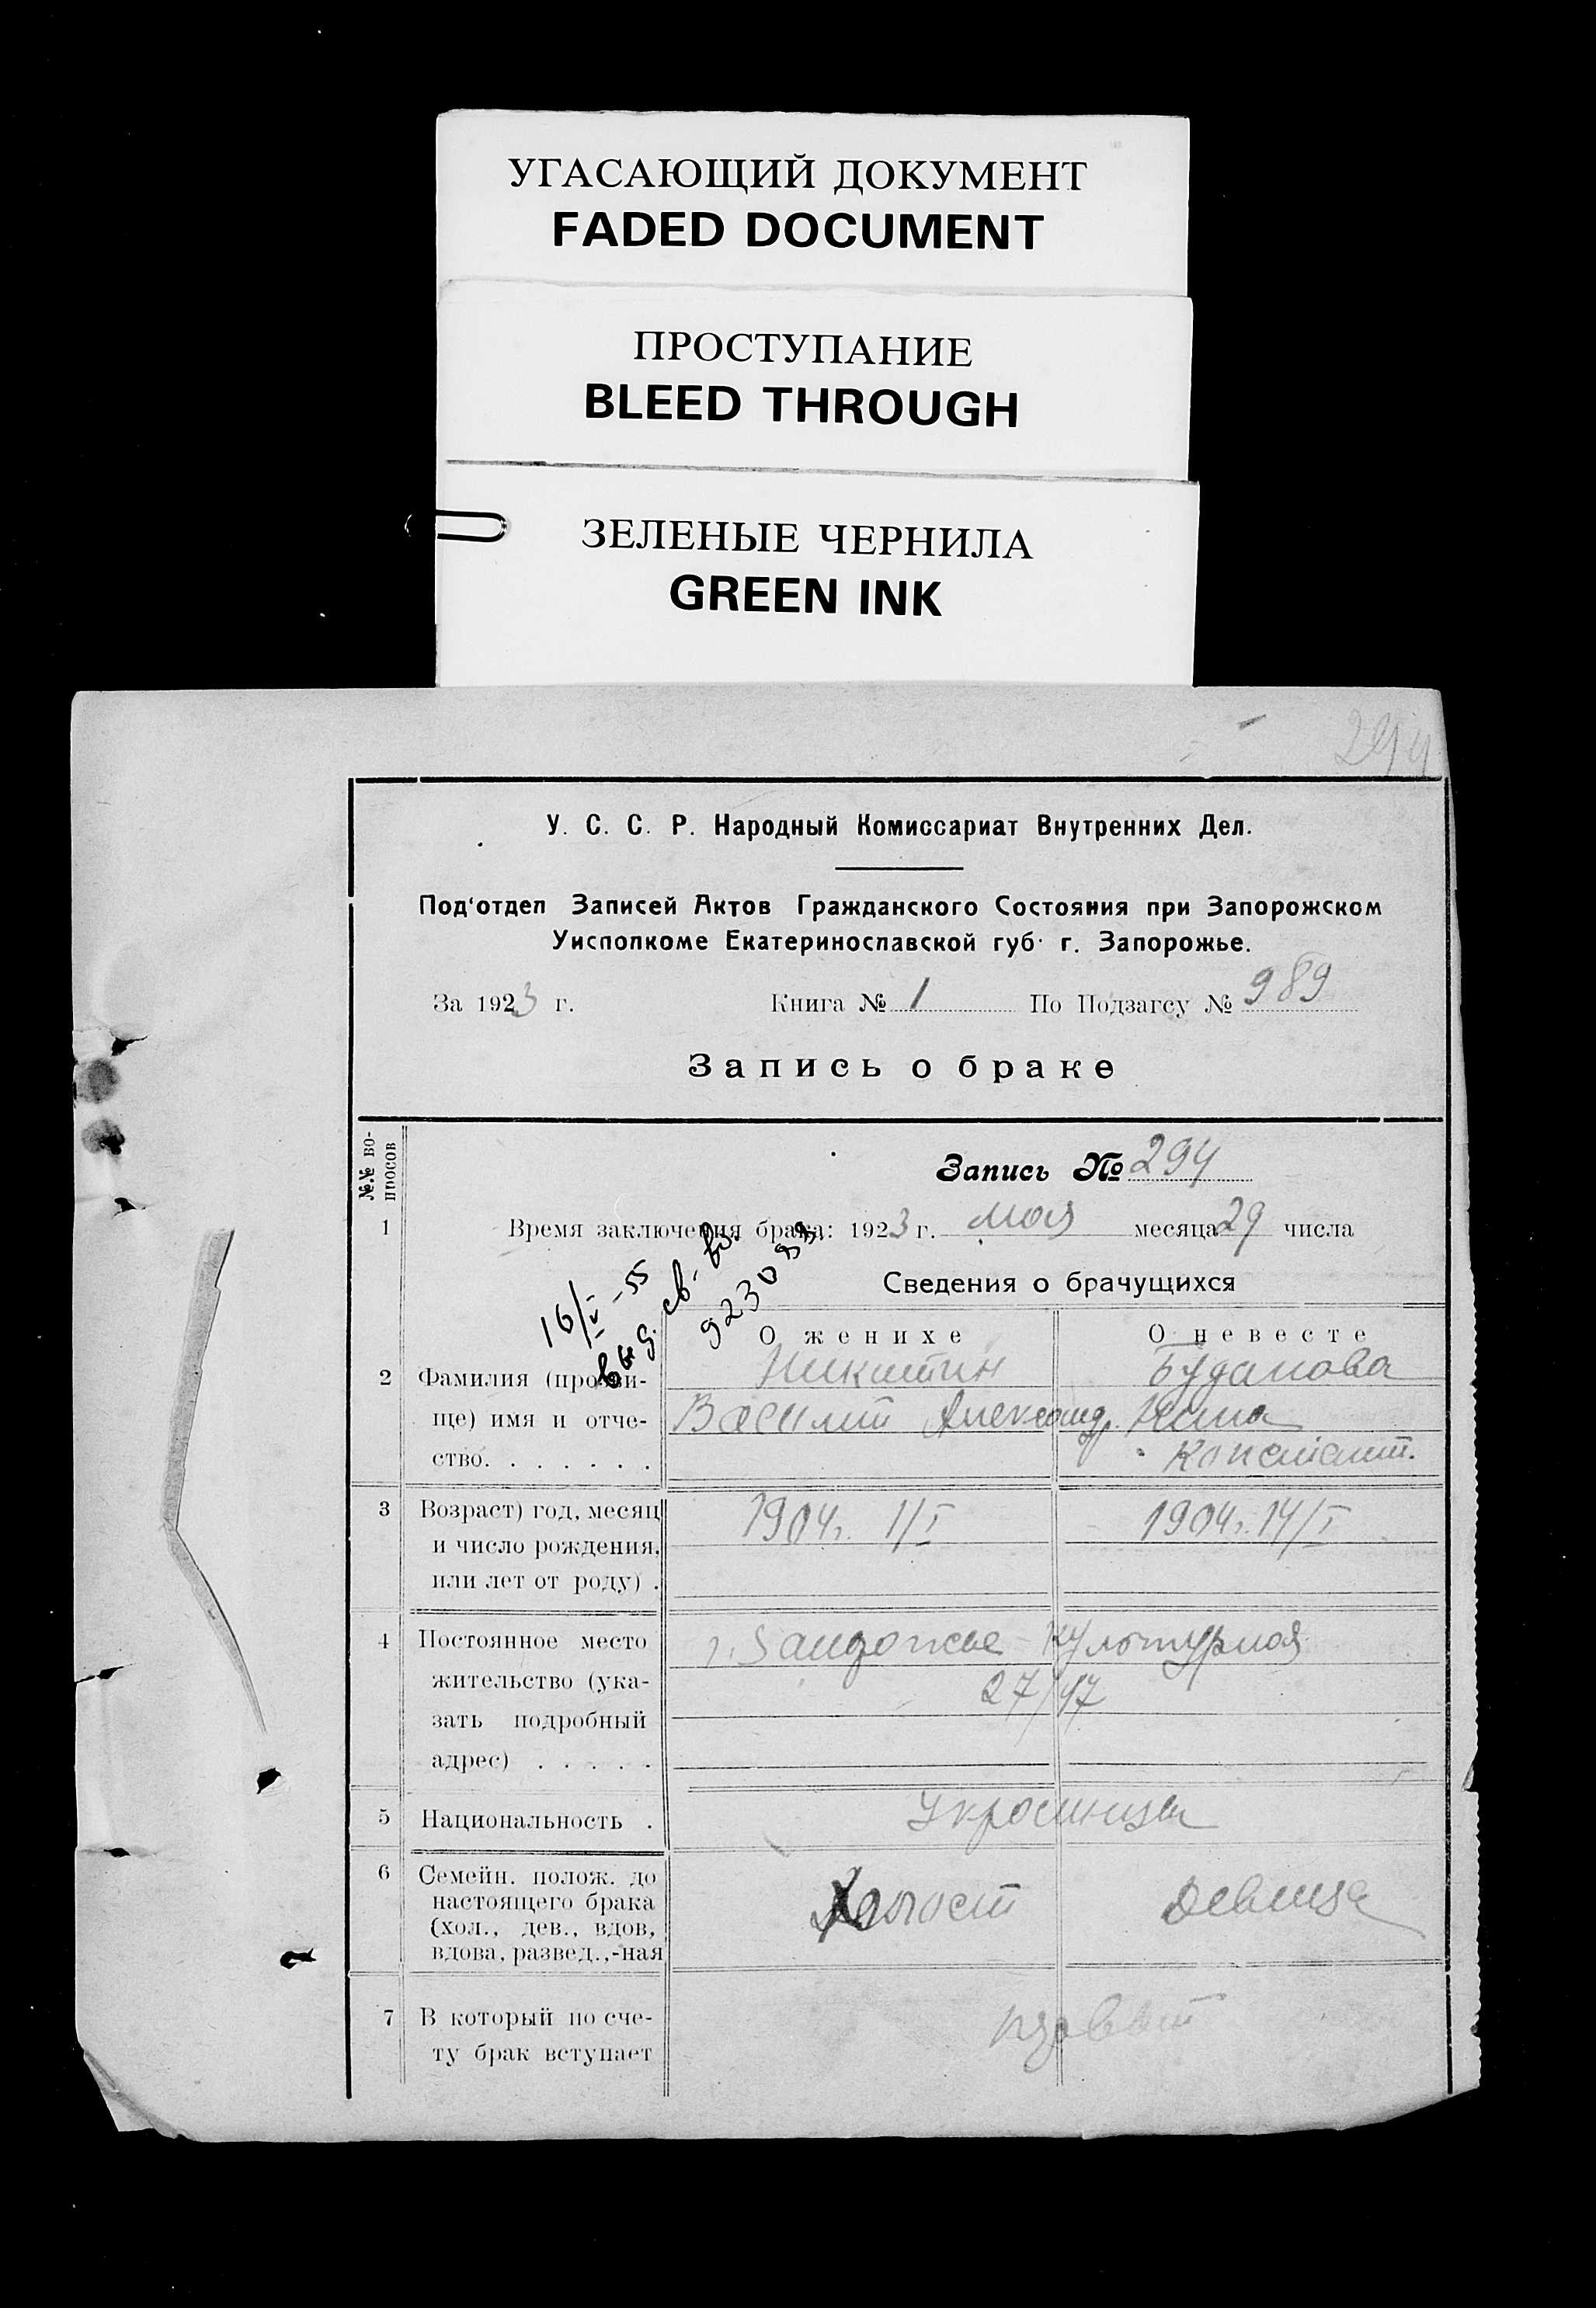 УГАСАЮЩИЙ ДОКУМЕНТ
FADED DOCUMENT
ПРОСТУПАНИЕ
BLEED THROUGH
ЗЕЛЕНЫЕ ЧЕРНИЛА
GREEN INK
294
У. С. С. Р. Народный Комиссариат Внутренних Дел.
Под'отдел Записей Актов Гражданского Состояния при Запорожском
Уисполкоме Екатеринославской губ. г. Запорожье.
За 1923 г. Книга № 1 По Подзагсу № 989
Запись о браке
№№ во-
просов
Запись № 294
1 Время заключения брака: 1923 г. мая месяца 29 числа
16/V-55
Выд. св. во
Сведения о брачущихся
О женихе О невесте
2 Фамилия (прозви- Никитин Буданова
ще) имя и отче- Василий Александр. Нина
ство. . . . . . . Констант.
3 Возраст) год, месяц 1904г. 1/I 1904г. 14/I
и число рождения,
или лет от роду) .
4 Постоянное место г. Запорожье Культурная
жительство (ука- 27/47
зать подробный
адрес) . . . . .
5 Национальность . Украинцы
6 Семейн. полож. до
настоящего брака Холост Девица
(хол., дев., вдов,
вдова, развед.,-ная
7 В который по сче- первый
ту брак вступает